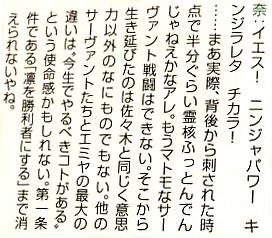 奈:イエス! ニンジャパワー キ
ンジラレタ チカラ!
……まあ実際、背後から刺された時
点で半分ぐらい霊核ふっとんでん
じゃねえかなアレ。もうマトモなサー
ヴァント戦闘はできない。そこから
生き延びたのは佐々木と同じく意思
力以外のなにものでもない。他の
サーヴァントたちとエミヤの最大の
違いは、"今生でやるべきコトがある"
という使命感かもしれない。第一条
件である「凛を勝利者にする」まで消
えられないやね。